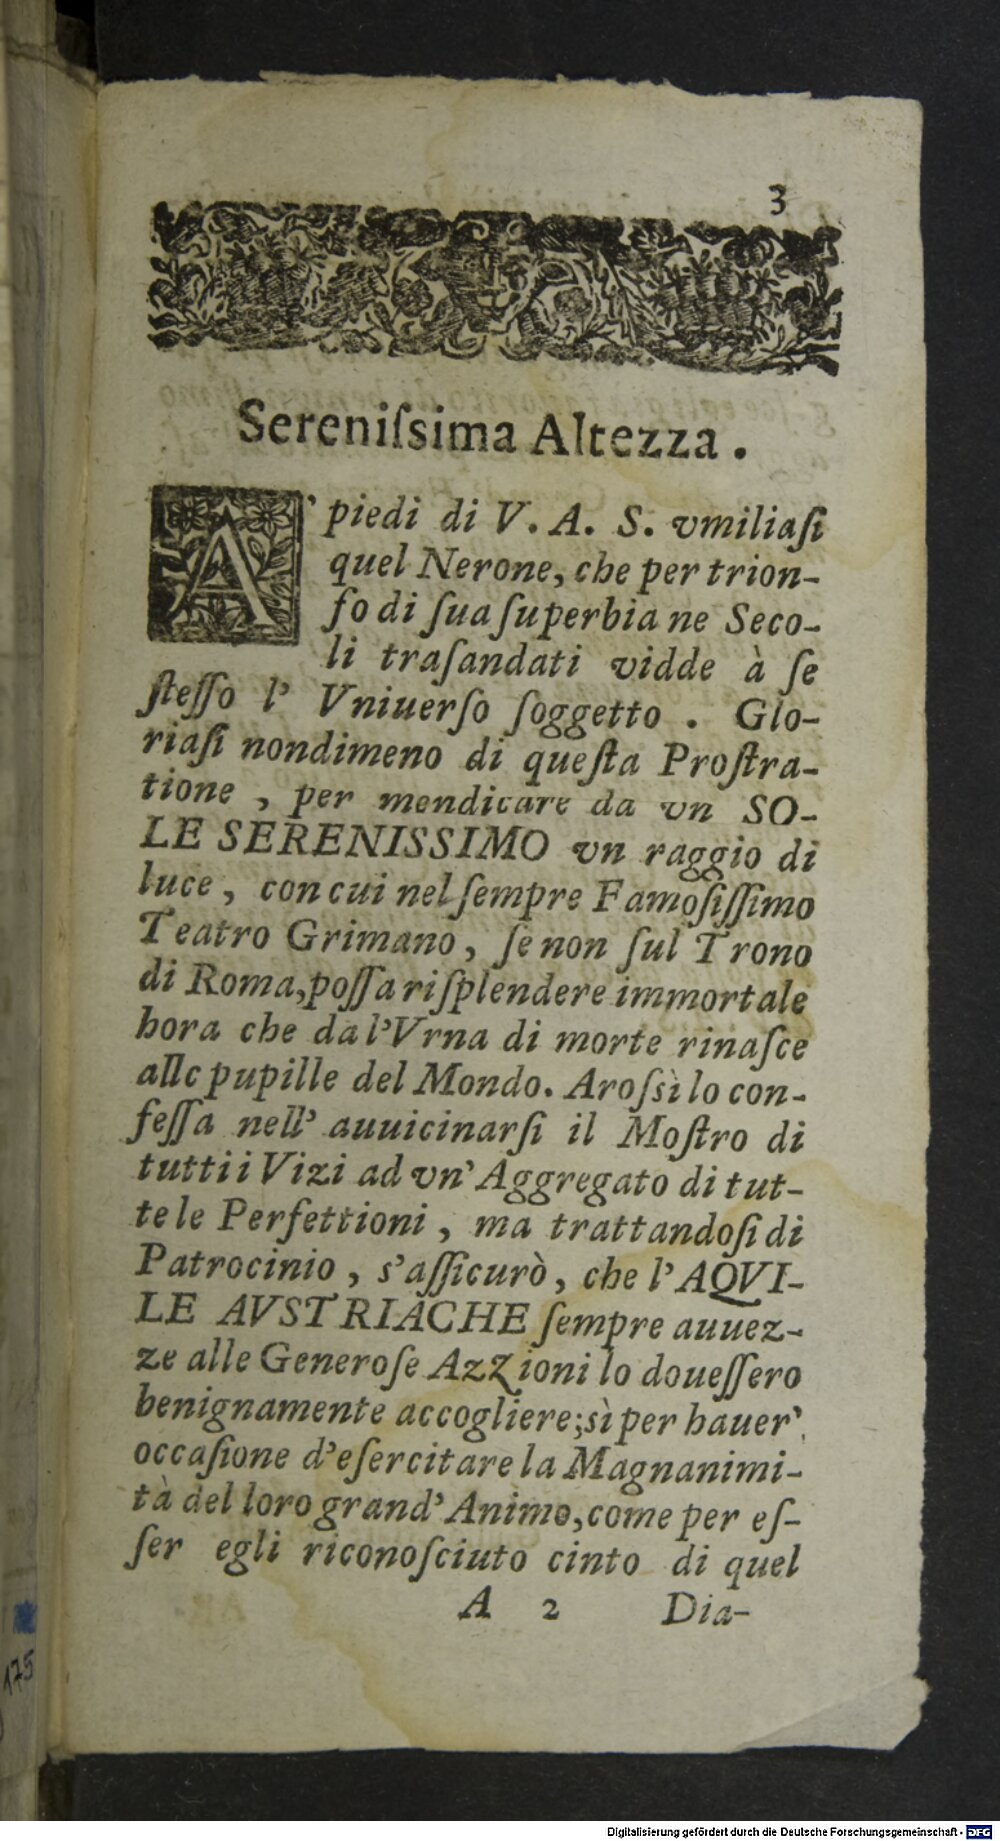 3
Sereniſsima Altezza .
A' piedi di V. A. S. vmiliaſi
quel Nerone, che per trion-
fo di ſua ſuperbia ne Seco-
li traſandati vidde à ſe
ſteſſo l' Vniuerſo ſoggetto . Glo-
riaſi nondimeno di queſta Proſtra-
tione , per mendicare da vn SO-
LE SERENISSIMO vn raggio di
luce , con cui nel ſempre Famoſiſſimo
Teatro Grimano , ſe non ſul Trono
di Roma, poſſa riſplendere immortale
hora che dal'Vrna di morte rinaſce
alle pupille del Mondo. Aroſsì lo con-
feſſa nell' auuicinarſi il Moſtro di
tutti i Vizi ad vn' Aggregato di tut-
te le Perfettioni , ma trattandoſi di
Patrocinio , s'aſſicurò , che l'AQVI-
LE AVSTRIACHE ſempre auuez-
ze alle Generoſe Azzioni lo doueſſero
benignamente accogliere; sì per hauer'
occaſione d'eſercitare la Magnanimi-
tà del loro grand' Animo, come per eſ-
ſer egli riconoſciuto cinto di quel
A 2 Dia-
175
Digitalisierung gefördert durch die Deutsche Forschungsgemeinschaft - DFG